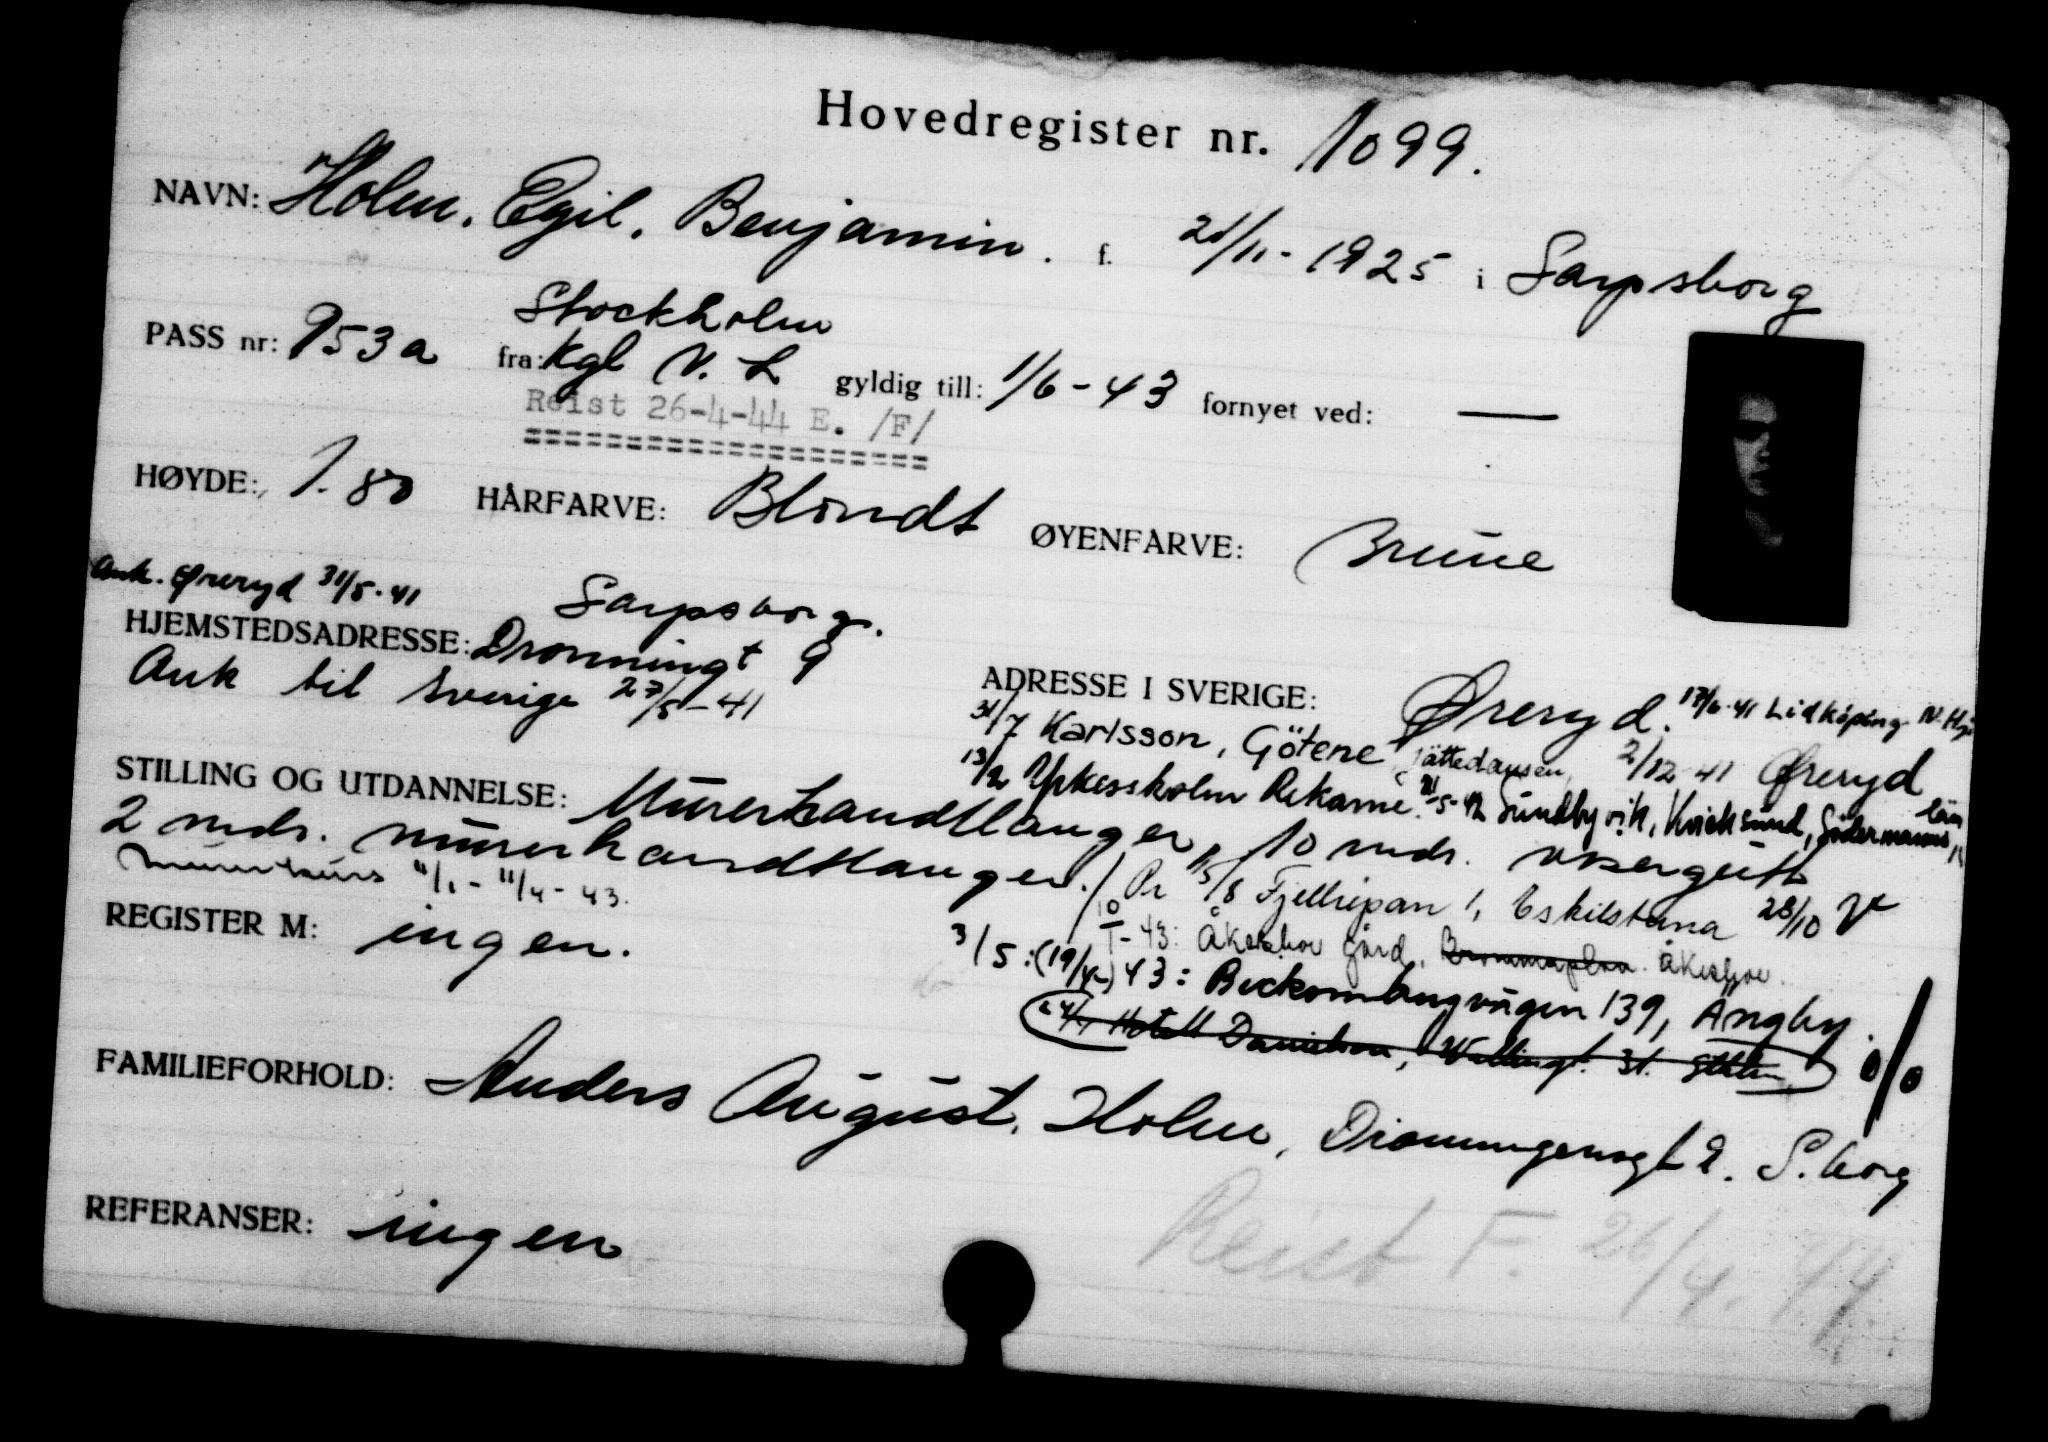 Hovedregister nr. 1099.
NAVN: Holm, Egil, Benjamin. f. 21/11-1925 i Sarpsborg
Stockholm
PASS nr: 953a fra: Kgl N. L gyldig till: 1/6-43 fornyet ved: —
Reist 26-4-44 E. /F/
HØYDE: 1.80 HÅRFARVE: Blondt ØYENFARVE: Brune
Ank. Øreryd 31/5-41
Sarpsborg.
HJEMSTEDSADRESSE: Dronningt 9
Ank til Sverige 27/5-41
ADRESSE I SVERIGE: Øreryd. 17/6-41 Lidköping
31/7 Karlsson, Götene 2/12-41 Øreryd
13/2 Yrkesskolen Rekarne. 21/5-42 Sundbyvik, Kvicksund, Södermanns län
STILLING OG UTDANNELSE: Murerhandtlanger, 10 mdr. visergutt
2 mdr. murerhandtlanger.
Murerkurs 11/1-11/4-43.
Pr 15/8 Fjellripan 1, Eskilstuna 28/10
10/1-43: Åkeshov gård, Brommaplan. Åkeshov.
REGISTER M: ingen.
3/5: (19/4-) 43: Beckombergvägen 139, Ängby.
Hotell Danielson, Wallingt. 31. Sthlm
FAMILIEFORHOLD: Anders August, Holm, Dronningensgt 9. S.borg
REFERANSER: ingen
Reist F. 26/4.44.